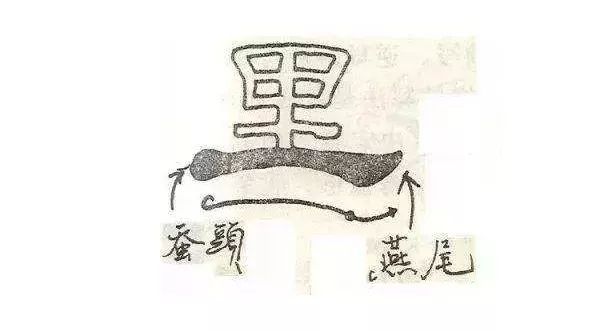 里
蚕頭 燕尾